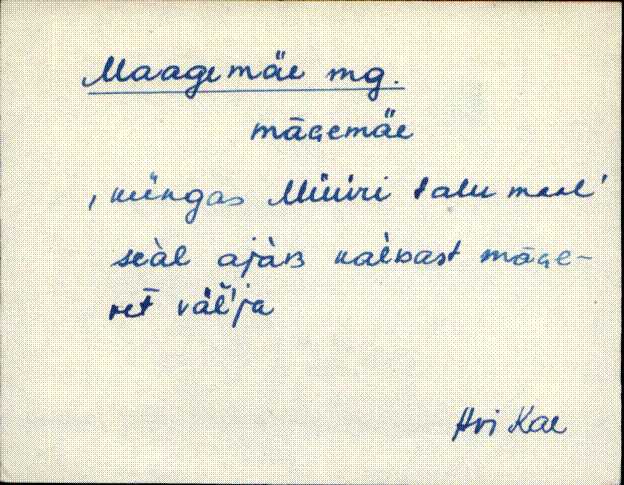 Maagemäe mg.
mägemäe
‚ küngas Müüri talu maal’
seàl ajàʙ kaèʙast mäge-
ret väl̆’ja
Hri Kae